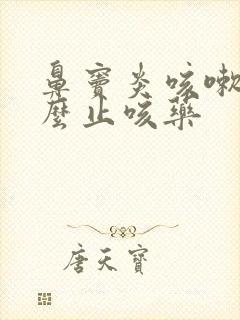 鼻窦炎咳嗽
麼止咳藥
唐天寶